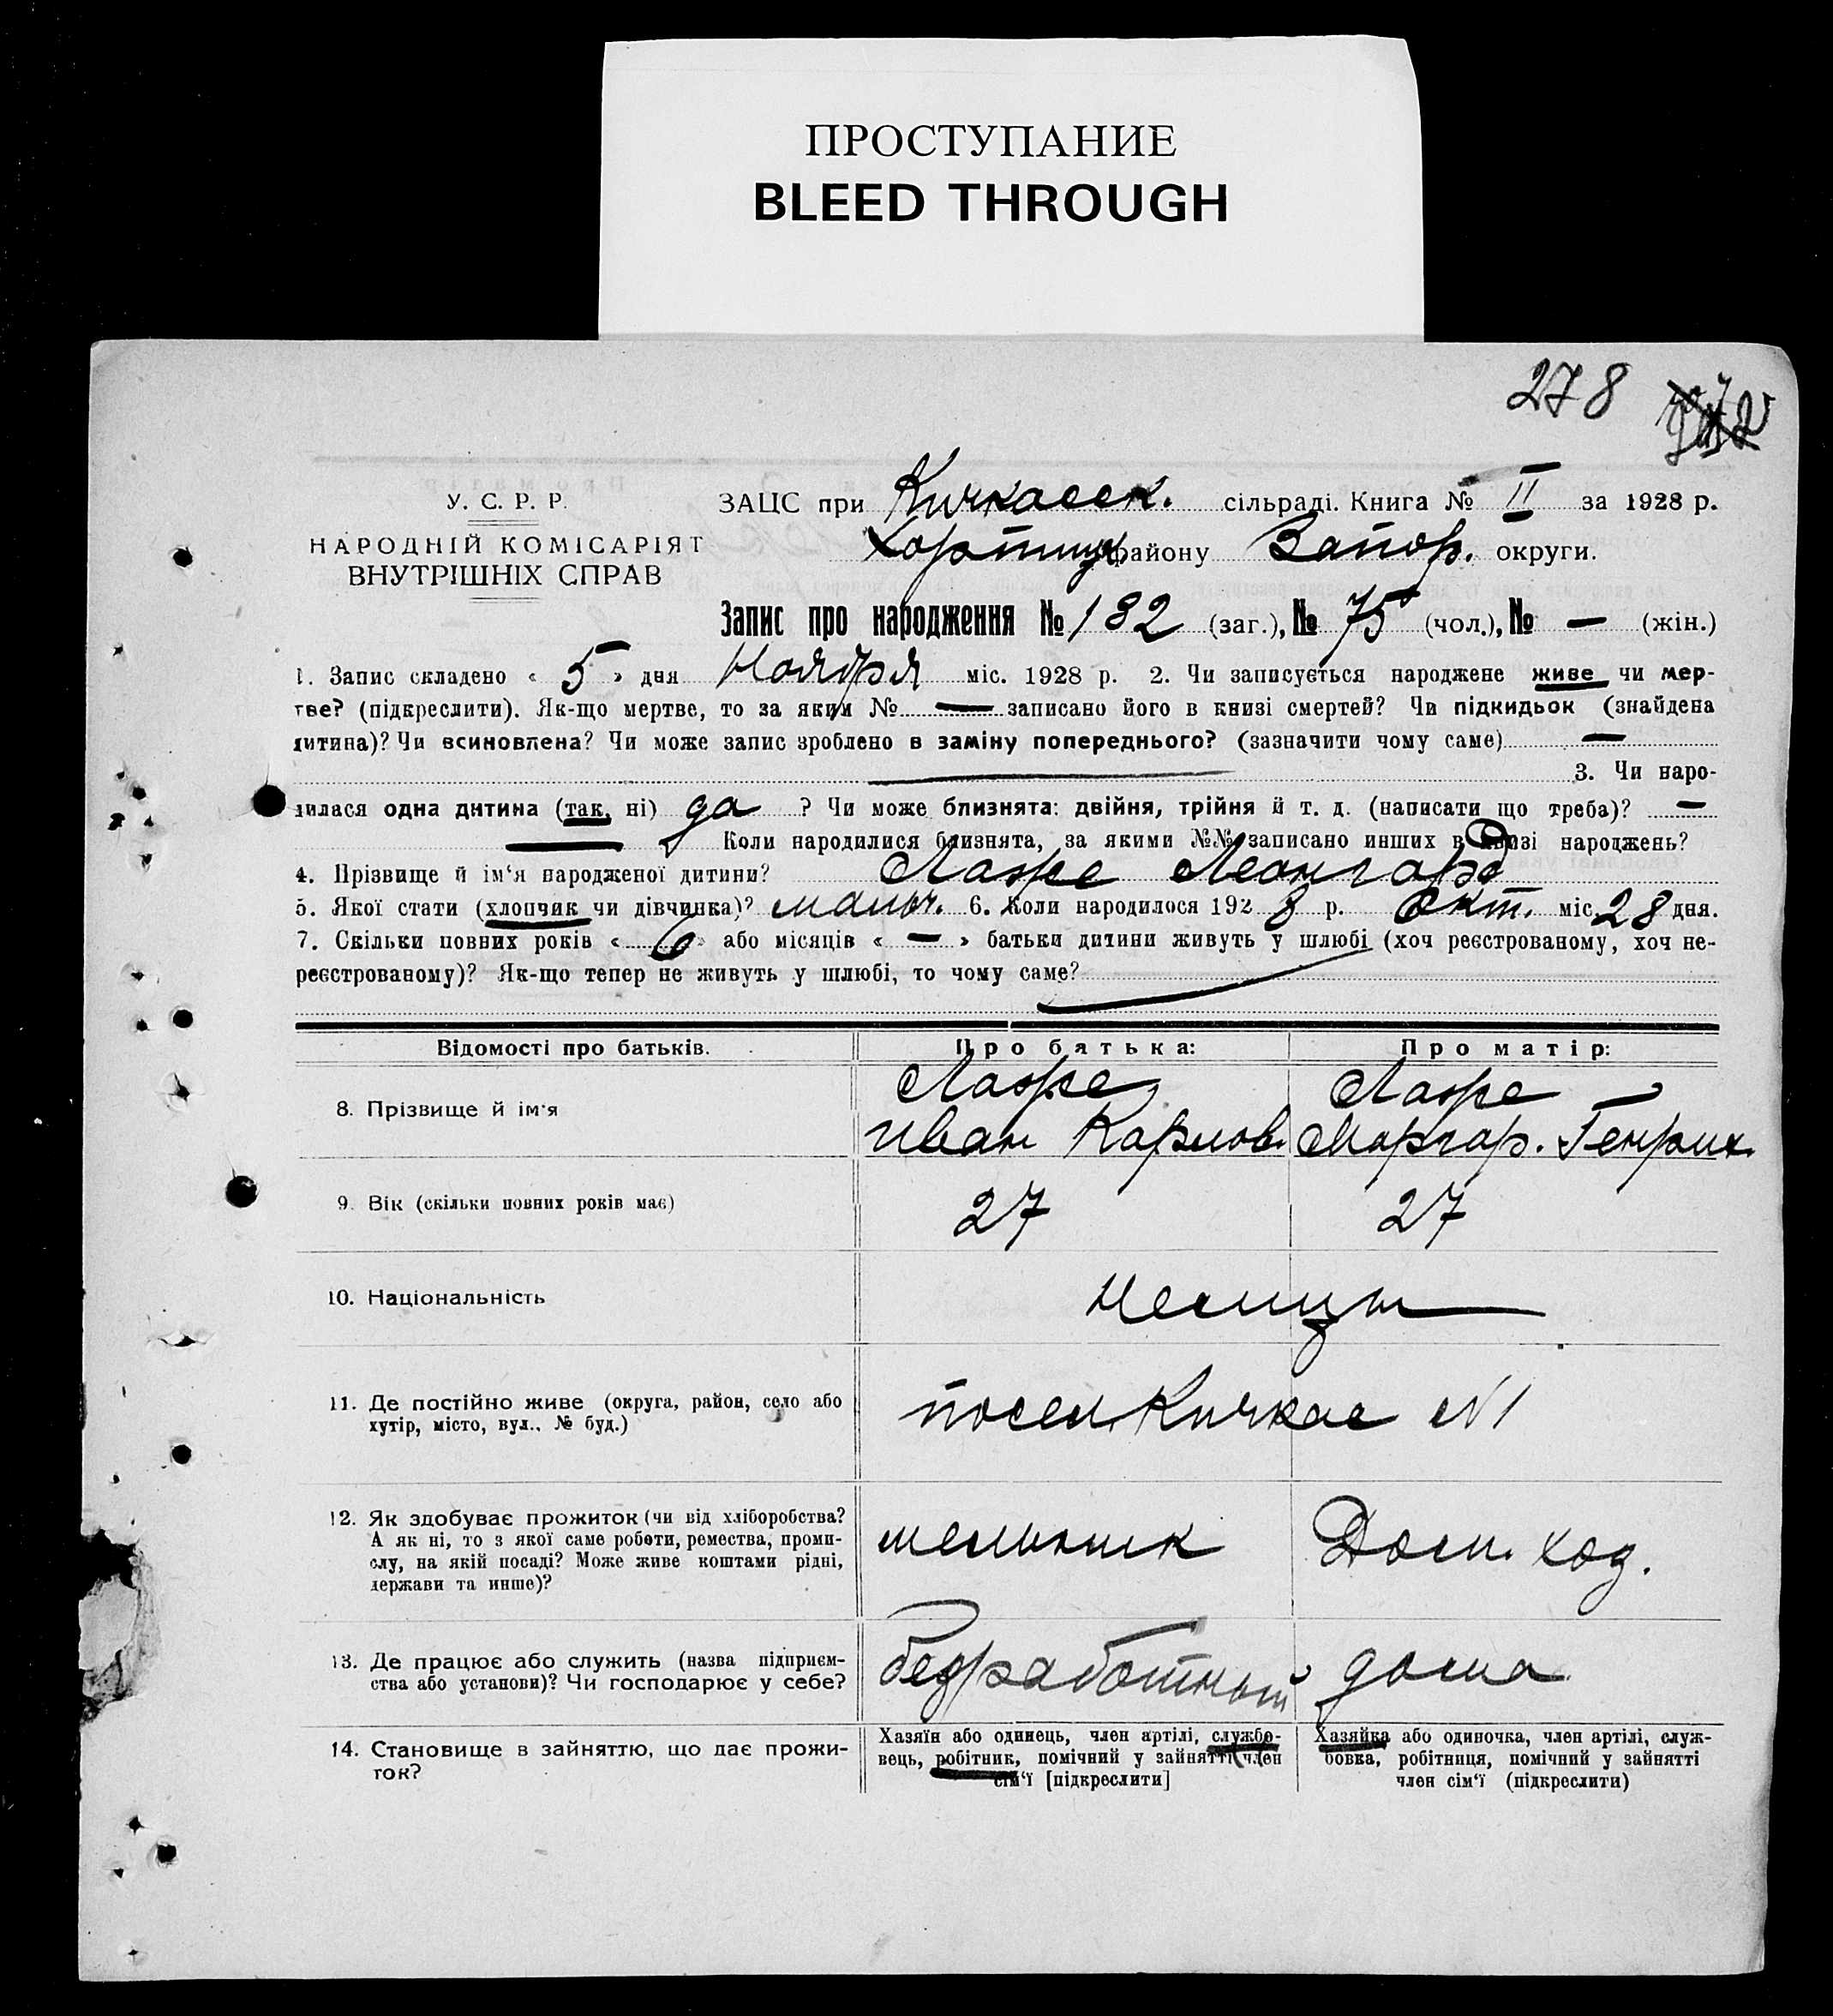 ПРОСТУПАНИЕ
BLEED THROUGH
278
У. С. Р. Р.
НАРОДНІЙ КОМІСАРІЯТ
ВНУТРІШНІХ СПРАВ
ЗАЦС при Кичкасск. сільраді. Книга № II за 1928 р.
Хортиц. району Запор. округи.
Запис про народження № 132 (заг.), № 75 (чол.), № — (жін.)
1. Запис складено « 5 » дня Ноября міс. 1928 р. 2. Чи записується народжене живе чи мер-
тве? (підкреслити). Як-що мертве, то за яким № — записано його в книзі смертей? Чи підкидьок (знайдена
дитина)? Чи всиновлена? Чи може запис зроблено в заміну попереднього? (зазначити чому саме) —
3. Чи наро-
дилася одна дитина (так, ні) да ? Чи може близнята: двійня, трійня й т. д. (написати що треба)? —
— Коли народилися близнята, за якими №№ записано инших в книзі народжень?
4. Прізвище й ім'я народженої дитини? Леонгард
5. Якої стати (хлопчик чи дівчинка)? мальч. 6. Коли народилося 1928 р. Окт. міс. 28 дня.
7. Скільки повних років « 6 » або місяців « — » батьки дитини живуть у шлюбі (хоч реєстрованому, хоч не-
реєстрованому)? Як-що тепер не живуть у шлюбі, то чому саме?
Відомості про батьків. Про батька: Про матір:
8. Прізвище й ім'я
Иван Карлов. Маргар. Генрих.
9. Вік (скільки повних років має) 27 27
10. Національність Немцы
11. Де постійно живе (округа, район, село або
хутір, місто, вул., № буд.)
посел. Кичкас №1
12. Як здобуває прожиток (чи від хліборобства?
А як ні, то з якої саме роботи, ремества, проми-
слу, на якій посаді? Може живе коштами рідні,
держави та инше)?
мельник Дом. хоз.
13. Де працює або служить (назва підприєм-
ства або установи)? Чи господарює у себе?
безработный дома
14. Становище в зайняттю, що дає прожи-
ток?
Хазяїн або одинець, член артілі, службо-
вець, робітник, помічний у зайнятті член
сім'ї [підкреслити]
Хазяйка або одиночка, член артілі, служ-
бовка, робітниця, помічний у зайнятті
член сім'ї (підкреслити)